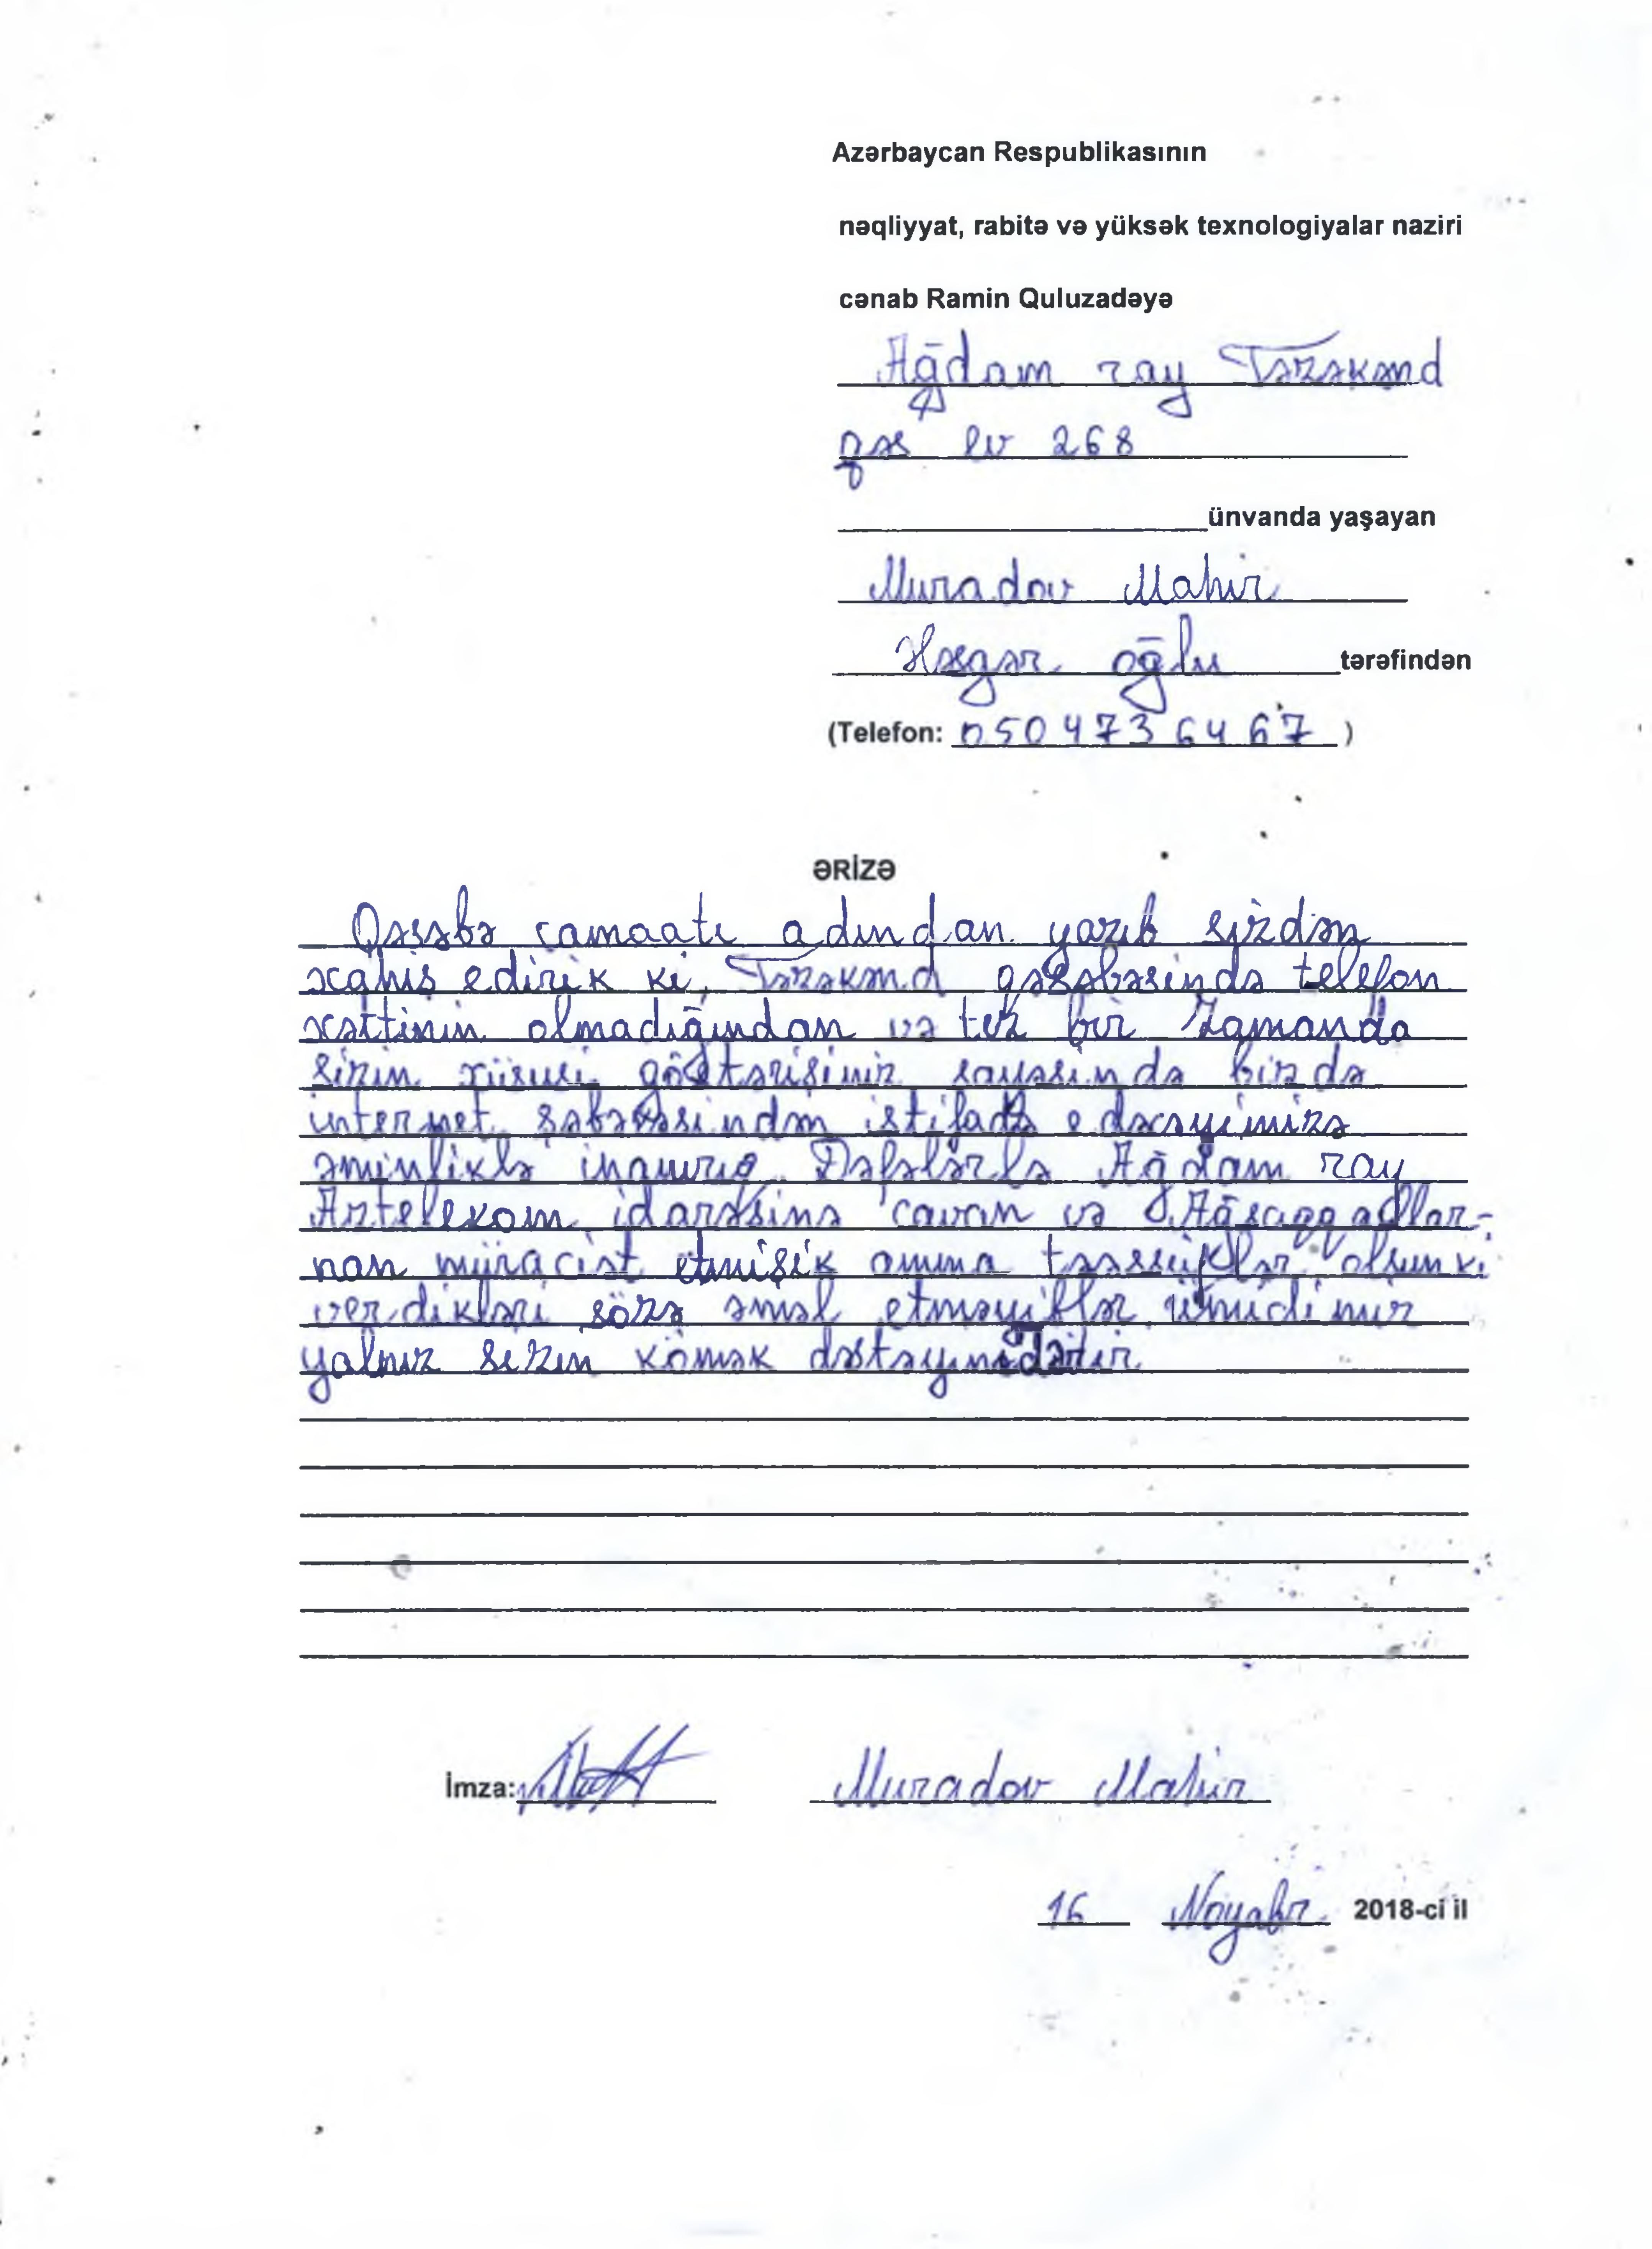 Azərbaycan Respublikasının
nəqliyyat, rabitə və yüksək texnologiyalar naziri
cənab Ramin Quluzadəyə
Ağdam ray Təzəkənd
qəs ev 268
ünvanda yaşayan
Muradov Mahir
Əsgər oğlu tərəfindən
(Telefon: 050 473 64 67 )
ƏRİZƏ
Qəsəbə camaatı adından yazıb sizdən
xahiş edirik ki, Təzəkənd qəsəbəsində telefon
xəttinin olmadığından və tez bir zamanda
sizin xüsusi göstərişiniz sayəsində bizdə
internet şəbəkəsindən istifadə edəcəyimizə
əminliklə inanırıq. Dəfələrlə Ağdam ray
Aztelekom idarəsinə cavan və Ağsaqqadlar-
nan müraciət etmişik amma təəssüflər olsun ki
verdikləri sözə əməl etməyiblər ümidimiz
yalnız sizin kömək dəstəyinizədir.
İmza: Muradov Mahir
16 Noyabr 2018-ci il